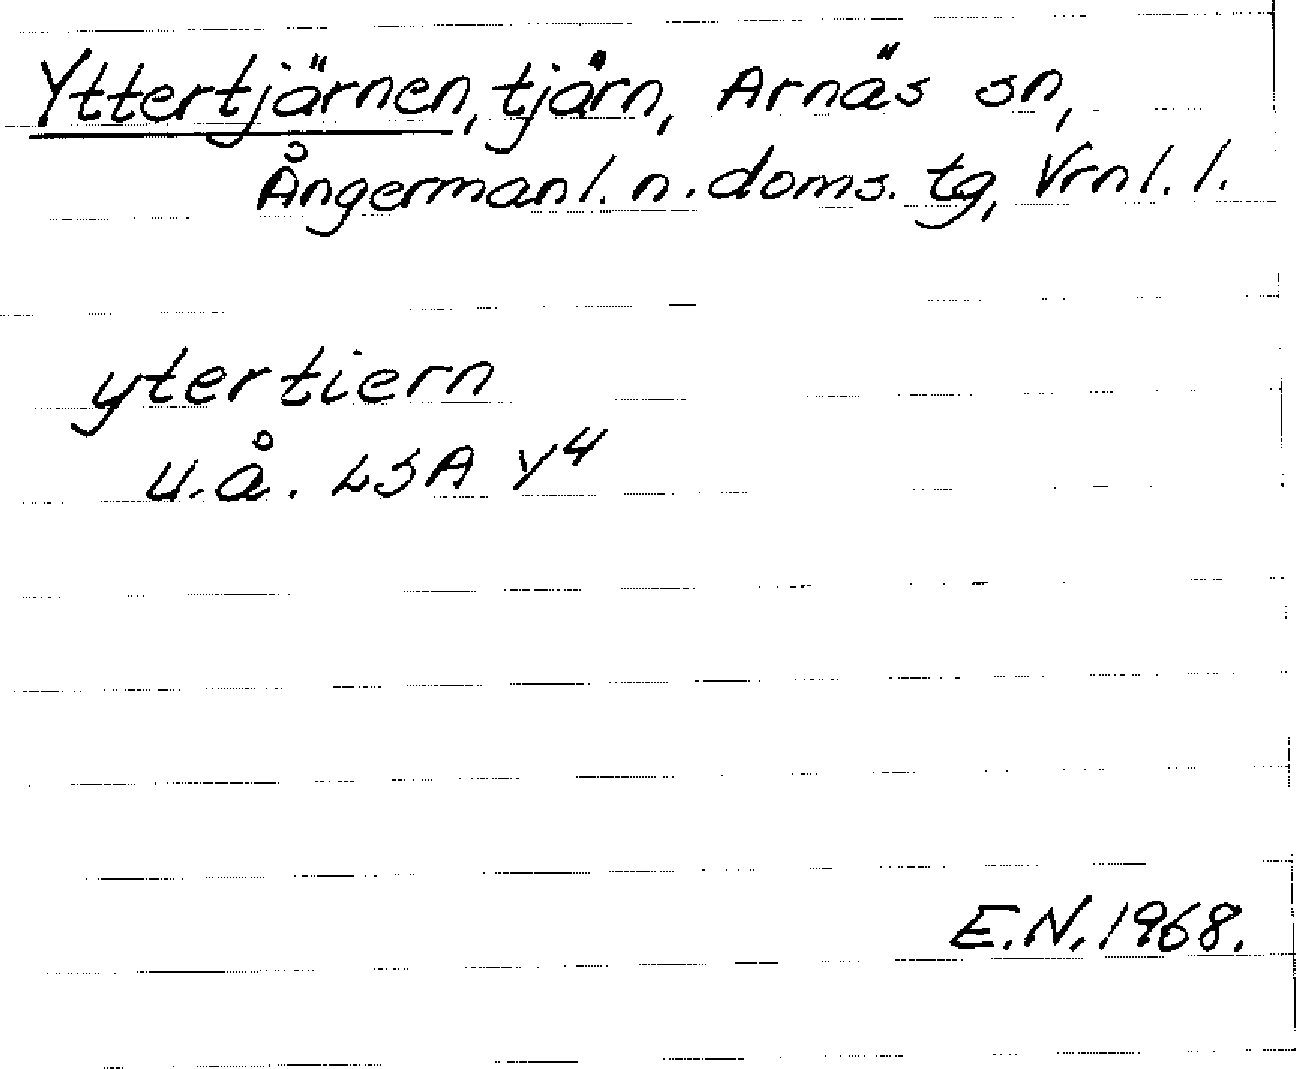 Yttertjärnen, tjärn, Arnäs sn,
Ångermanl. n. doms. tg, Vrnl. l.
ytertiern
u.å. LSA Y4
E.N. 1968.